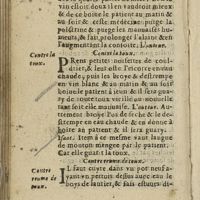 vin est bon deux s'en vaudront mieux
& de ce boite le patient au matin &
au soir & ceste medecine purge la
poictrine & purge les mauuaises hu-
meurs, & fait prolonger l'alaine & en
l'augmentant la conforte, L'auteur.
Contre la toux.
Contre la
toux.
PRens petites noisettes de coul-
drier, & leur oste l'escorce en eau
chaude, puis les broye & destrempe
en vin blanc ou au matin, & au soir
en donne au patient, & il sera gua-
ry de toute toux vieille ou nouuelle
tant soit elle mauuaise. L'auteur. Au-
trement broye l'os de seche & le des-
trempe en eau chaude & en donne à
boire au patient & il sera guary.
Ysaac. Item à ce mesme vaut langue
de mouton mangee par le patient.
Car elle guarit la toux.
Contre reume de toux.
Contre
reume de
toux.
IL faut cuyre dans vn pot neuf a-
yant vn pertuis dessus auec eau le
boys de laurier, & fais estuues di-